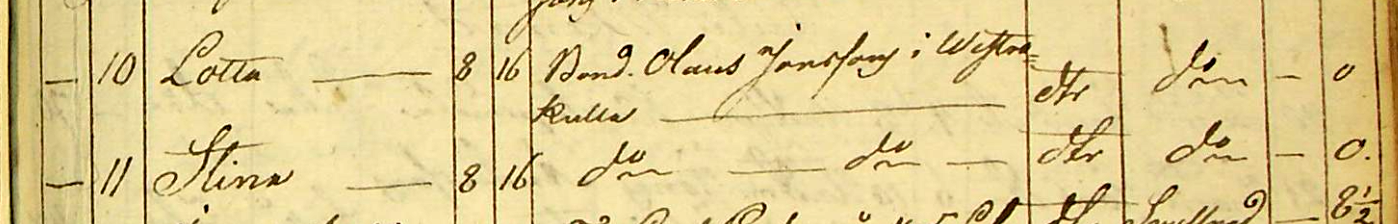 — 10 Lotta — 8 16 Bond. Olaus Jonssons i Westra=
kulla — dtr do — 0
— 11 Stina — 8 16 do — do — dtr do — 0.
8½